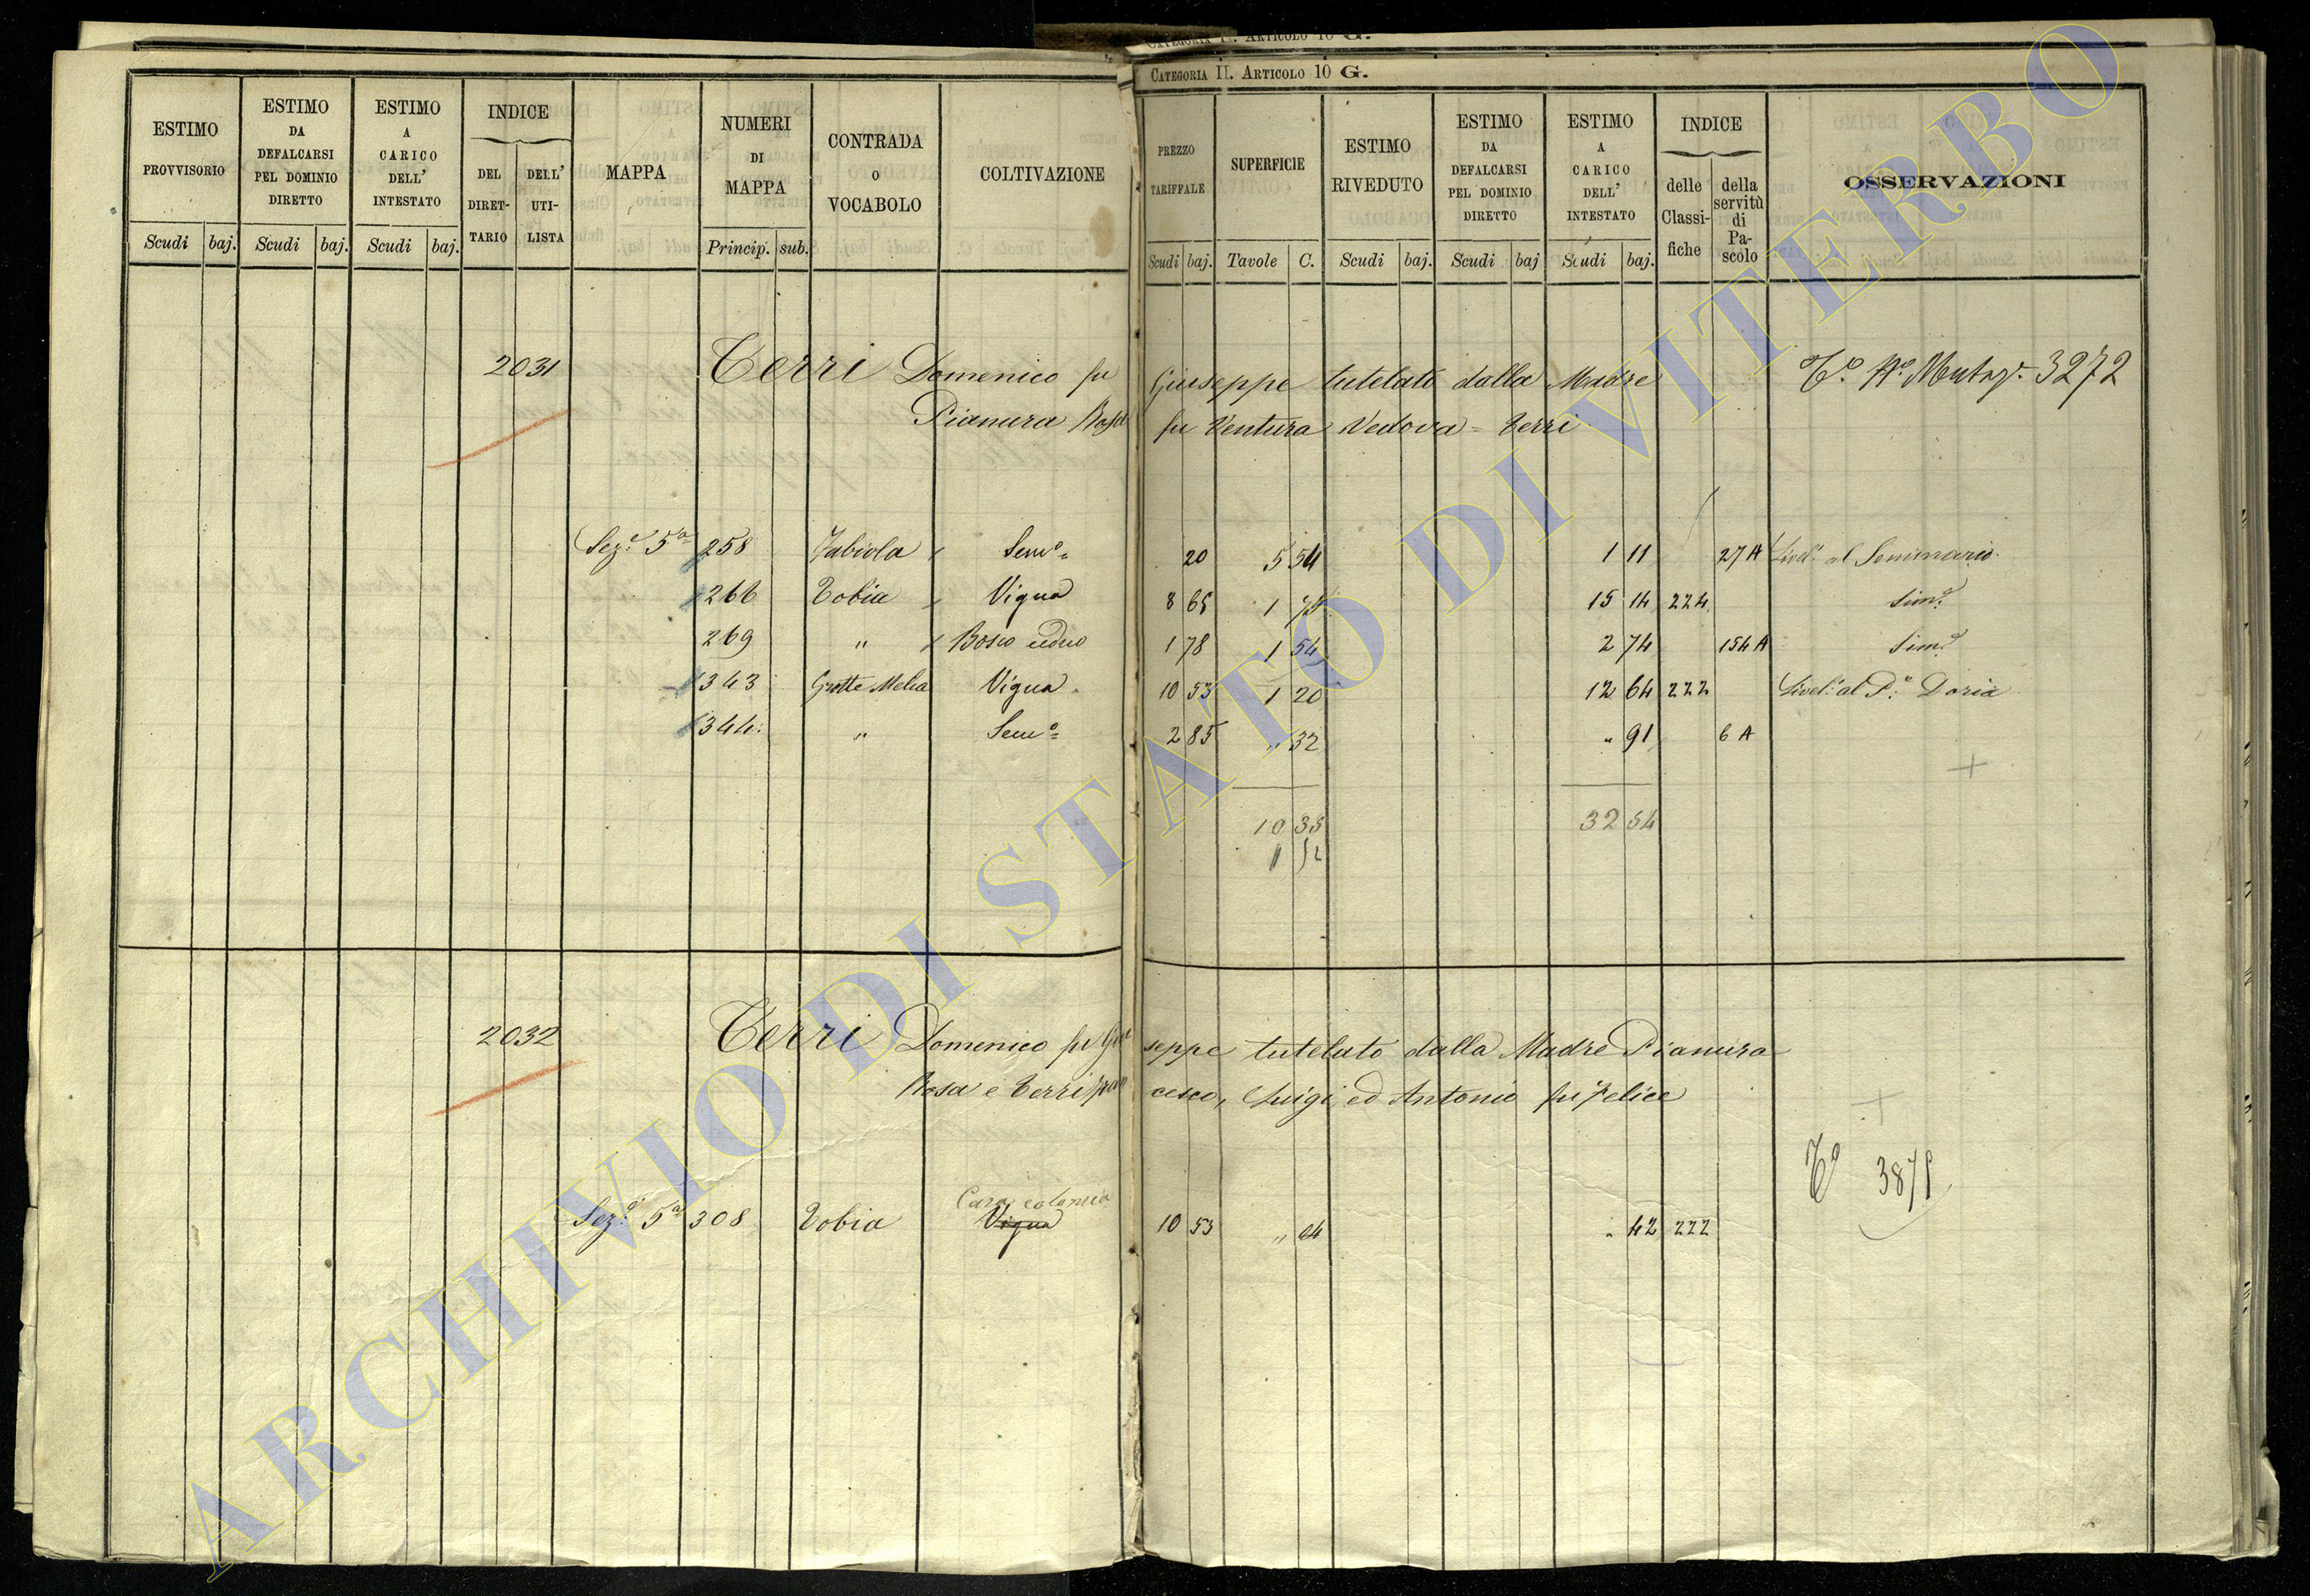 CATEGORIA II. ARTICOLO 10 G.
ESTIMO PROVVISORIO Scudi baj.
ESTIMO DA DEFALCARSI PEL DOMINIO DIRETTO Scudi baj.
ESTIMO A CARICO DELL' INTESTATO Scudi baj.
INDICE DEL DIRET-TARIO DELL' UTI-LISTA
MAPPA
NUMERI DI MAPPA Princip. sub.
CONTRADA O VOCABOLO
COLTIVAZIONE
PREZZO TARIFFALE Scudi baj.
SUPERFICIE Tavole C.
ESTIMO RIVEDUTO Scudi baj.
ESTIMO DA DEFALCARSI PEL DOMINIO DIRETTO Scudi baj
ESTIMO A CARICO DELL' INTESTATO Scudi baj.
INDICE delle Classi-fiche della servitù di Pa-scolo
OSSERVAZIONI
2031 Terri Domenico fu Giuseppe tutelato dalla Madre 3272
Pianura Rosa fu Ventura Vedova = Terri
Sez.e 5a 258 Fabiola Sem.o 20 5 54 1 11 27 A Livel.o al Seminario
266 Tobia Vigna 8 65 1 75 15 14 224 Sim.e
269 " Bosco ceduo 1 78 1 54 2 74 154 A Sim.e
343 Grotte Melea Vigna 10 53 1 20 12 64 222 Livel.o al P.e Doria
344 " Sem.o 2 85 " 32 " 91 6 A
10 35 32 54
2032 Terri Domenico fu Giuseppe tutelato dalla Madre Pianura
Rosa e Terri Francesco, Luigi, ed Antonio fu Felice
Casa colonica
Sez.e 5a 308 Tobia Vigna 10 53 " 04 " 42 222
ARCHIVIO DI STATO DI VITERBO